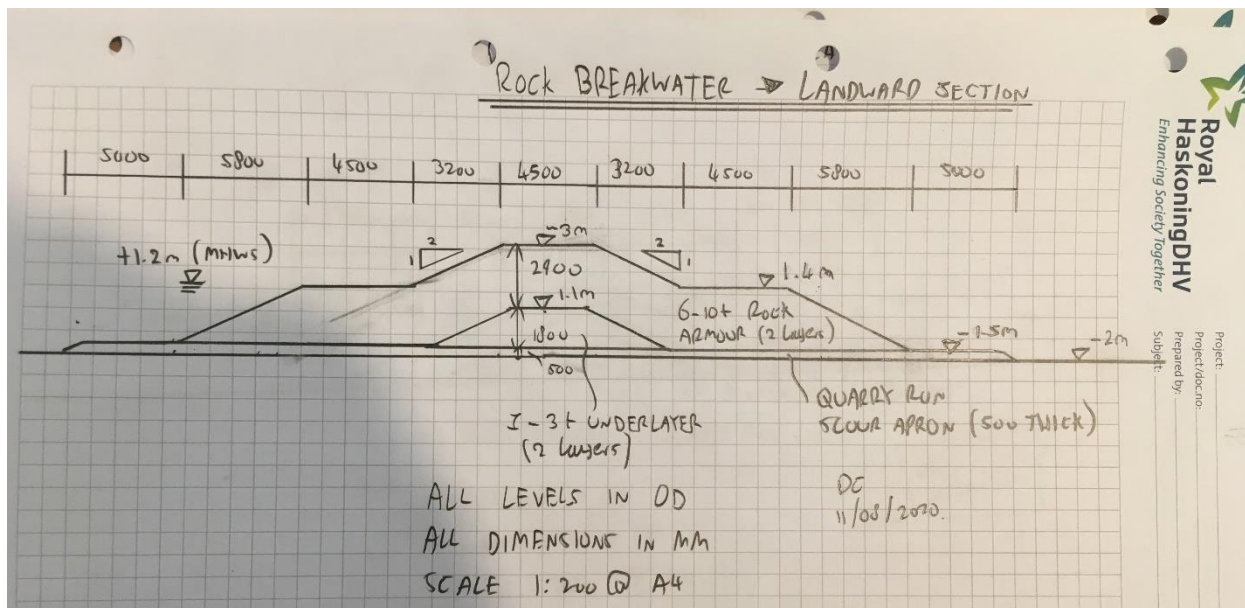 ROCK BREAKWATER → LANDWARD SECTION
5000 5800 4500 3200 4500 3200 4500 5800 5000
+1.2m (MHWS)
2
1
-3m
2
1
2900
1.4m
1.1m
6-10t ROCK
ARMOUR (2 Layers)
1800
-1.5m
-2m
500
1-3t UNDERLAYER
(2 Layers)
QUARRY RUN
SCOUR APRON (500 THICK)
ALL LEVELS IN OD
ALL DIMENSIONS IN MM
SCALE 1:200 @ A4
DC
11/08/2020.
Royal
HaskoningDHV
Enhancing Society Together
Project:
Project/doc.no:
Prepared by:
Subject: